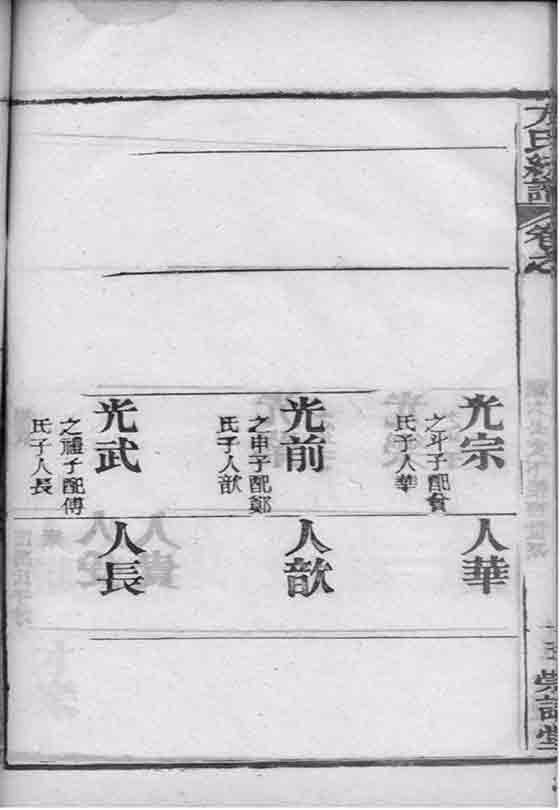 方氏統譜
光宗
之斗子配貟
氏子人華
光前
之申子配鄭
氏子人歆
光武
之禮子配傅
氏子人長
人華
人歆
人長